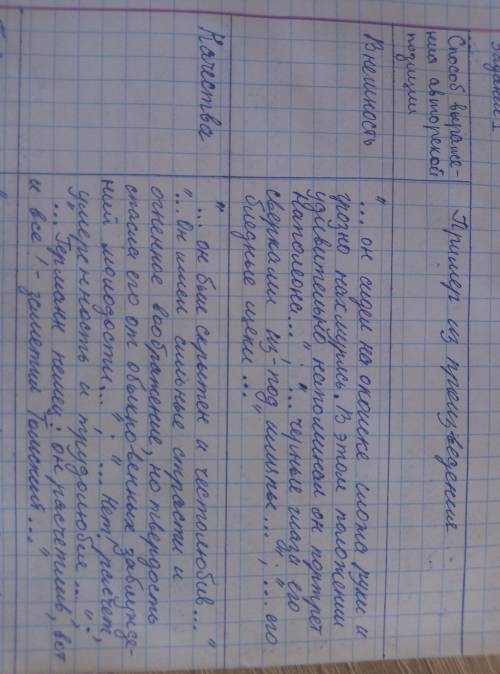 Задание 1
Способ выраже-
ния авторской
позиции
Пример из произведения
Внешность
"... он сидел на окошке сложа руки и
грозно нахмурясь. В этом положении
удивительно напоминал он портрет
Наполеона..."; "... черные глаза его
сверкали из-под шляпы..."; "... его
бледные щеки..."
Качества
"... он был скрытен и честолюбив..."
"... он имел сильные страсти и
огненное воображение, но твердость
спасла его от обыкновенных заблужде-
ний молодости..."; "... Нет! расчет,
умеренность и трудолюбие...";
"... Германн немец: он расчетлив, вот
и все! - заметил Томский..."